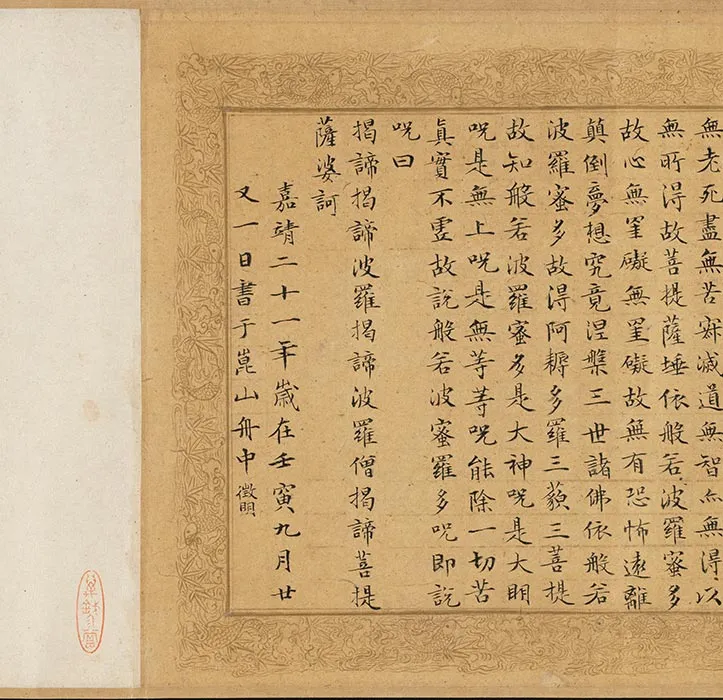 無老死盡無苦寂滅道無智亦無得以
無所得故菩提薩埵依般若波羅蜜多
故心無罣礙無罣礙故無有恐怖遠離
顛倒夢想究竟涅槃三世諸佛依般若
波羅蜜多故得阿耨多羅三藐三菩提
故知般若波羅蜜多是大神呪是大明
呪是無上呪是無等等呪能除一切苦
真實不虛故說般若波蜜羅多呪即說
呪曰
揭諦揭諦波羅揭諦波羅僧揭諦菩提
薩婆訶
嘉靖二十一年歲在壬寅九月廿
又一日書于崑山舟中 徵明